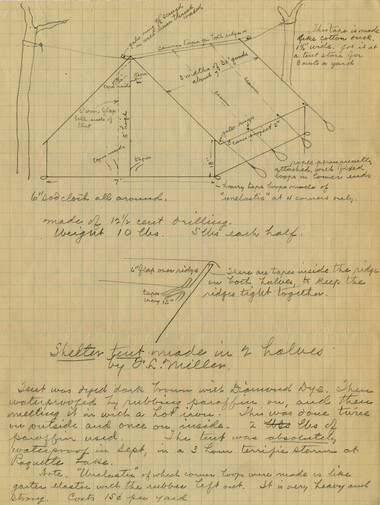 This tape is made
like cotton duck.
1½" wide. Got it at
a tent store for
8 cents a yard
canvas Tape on both edges
3 widths of 36" goods
tape inside
tape
6"
7'
ropes permanently
attached, with fixed
loops in lower ends
heavy tape loops made of
"unelastic" at 4 corners only.
6" sod cloth all around.
made of 12½ cent drilling.
Weight 10 lbs. 5 lbs each half.
6" flap over ridge
tapes
every 15"
There are tapes inside the ridge
on both halves, to keep the
ridges tight together.
Shelter tent made in 2 halves
by O.L. Miller.
Tent was dyed dark brown with Diamond Dye. Then
waterproofed by rubbing paraffin on, and then
melting it in with a hot iron. This was done twice
on outside and once on inside. 2 lbs of
paraffin used. The tent was absolutely
waterproof in Sept, in a 3 hour terrific storm at
Raquette Lake.
Note. "Unelastic" of which corner loops were made is like
garter elastic with the rubber left out. It is very heavy and
strong. Costs 15¢ per yard